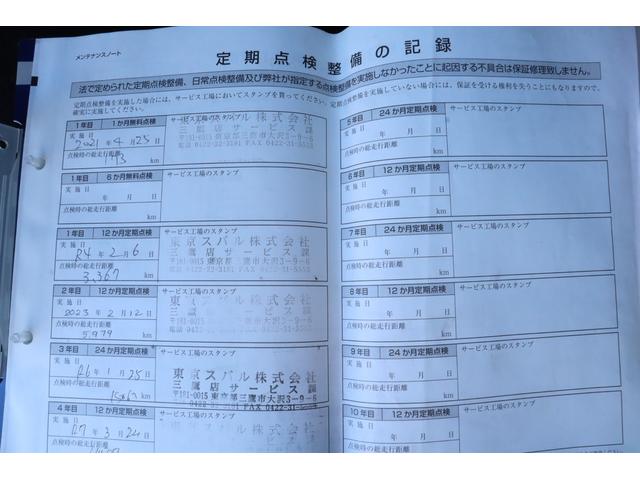 メンテナンスノート
定期点検整備の記録
法で定められた定期点検整備、日常点検整備及び弊社が指定する点検整備を実施しなかったことに起因する不具合は保証修理致しません。
定期点検整備を実施した場合には、サービス工場においてスタンプを貰ってください。定期点検整備を実施していない場合には、保証を受ける権利を失うことにもなりますので、
確実に実施してください。
1年目 1か月無料点検
サービス工場のスタンプ
実施日
2021年4月25日
点検時の総走行距離
km
東京スバル株式会社
三鷹店サービス課
〒181-0015 東京都三鷹市大沢3-9-6
電話 0422-32-3181 FAX 0422-31-
1年目 6か月無料点検
サービス工場のスタンプ
実施日
年 月 日
点検時の総走行距離
km
1年目 12か月定期点検
サービス工場のスタンプ
実施日
R4年2月6日
点検時の総走行距離
3,367 km
東京スバル株式会社
三鷹店サービス課
〒181-0015 東京都三鷹市大沢3-9-6
2年目 12か月定期点検
サービス工場のスタンプ
実施日
2023年2月12日
点検時の総走行距離
5979 km
東京スバル株式会社
三鷹店サービス課
〒181-0015
3年目 24か月定期点検
サービス工場のスタンプ
実施日
R6年1月25日
点検時の総走行距離
km
東京スバル株式会社
三鷹店サービス課
〒181-0015 東京都三鷹市大沢3-9-6
4年目 12か月定期点検
サービス工場のスタンプ
実施日
R7年3月24日
点検時の総走行距離
5年目 24か月定期点検
サービス工場のスタンプ
実施日
年 月 日
点検時の総走行距離
km
6年目 12か月定期点検
サービス工場のスタンプ
実施日
年 月 日
点検時の総走行距離
km
7年目 24か月定期点検
サービス工場のスタンプ
実施日
年 月 日
点検時の総走行距離
km
8年目 12か月定期点検
サービス工場のスタンプ
実施日
年 月 日
点検時の総走行距離
km
9年目 24か月定期点検
サービス工場のスタンプ
実施日
年 月 日
点検時の総走行距離
km
10年目 12か月定期点検
サービス工場のスタンプ
実施日
年 月 日
点検時の総走行距離
km